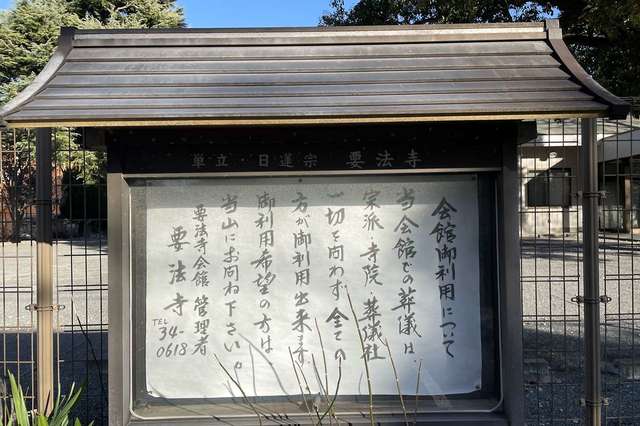 単立・日蓮宗 要法寺
会館御利用について
当会館での葬儀は、
宗派 寺院 葬儀社
一切を問わず、全ての
方が御利用出来ます
御利用希望の方は、
当山にお問ね下さい。
要法寺会館 管理者
要法寺
TEL 34-0618